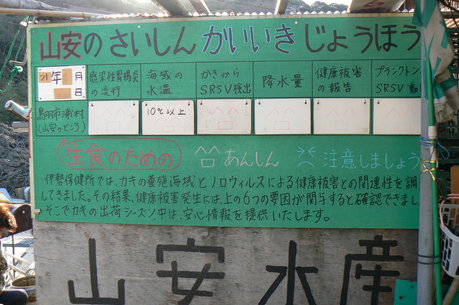 山安のさいしんかいいきじょうほう
21年 月 日 感染性胃腸炎の流行 海域の水温 かきからSRSV検出 降水量 健康被害の報告 プランクトンSRSV
鳥羽市浦村(山安のところ) 10℃以上
生食のための あんしん 注意しましょう
伊勢保健所では、カキの養殖海域とノロウィルスによる健康被害との関連性を調
てきました。その結果、健康被害発生には、上の6つの要因が関与すると確認できまし
そこでカキの出荷シーズン中は、安心情報を提供いたします。
山安水産